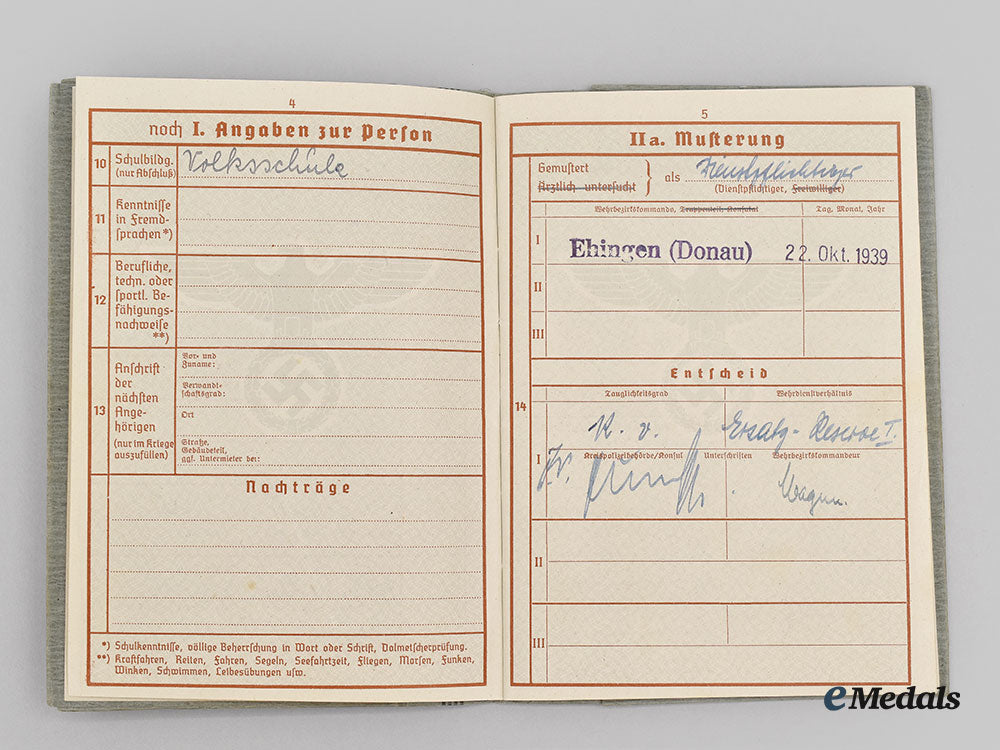 4
noch I. Angaben zur Person
10 Schulbildg. (nur Abschluß) Volksschule
11 Kenntnisse in Fremd-
sprachen*)
12 Berufliche,
techn. oder
sportl. Be-
fähigungs-
nachweise
**)
13 Anschrift
der
nächsten
Ange-
hörigen
(nur im Kriege
auszufüllen)
Vor- und
Zuname:
Verwandt-
schaftsgrad:
Ort
Straße,
Gebäudeteil,
ggf. Untermieter bei:
Nachträge
*) Schulkenntnisse, völlige Beherrschung in Wort oder Schrift, Dolmetscherprüfung.
**) Kraftfahren, Reiten, Fahren, Segeln, Seefahrtzeit, Fliegen, Morsen, Funken,
Winken, Schwimmen, Leibesübungen usw.
5
IIa. Musterung
Gemustert
Ärztlich untersucht
als Dienstpflichtiger
(Dienstpflichtiger, Freiwilliger)
Wehrbezirkskommando, Truppenteil, Konsulat Tag, Monat, Jahr
I Ehingen (Donau) 22. Okt. 1939
II
III
14
Entscheid
Tauglichkeitsgrad Wehrdienstverhältnis
K. v. Ersatz-Reserve I.
I Kreispolizeibehörde/Konsul Unterschriften Wehrbezirkskommandeur
II
III
eMedals